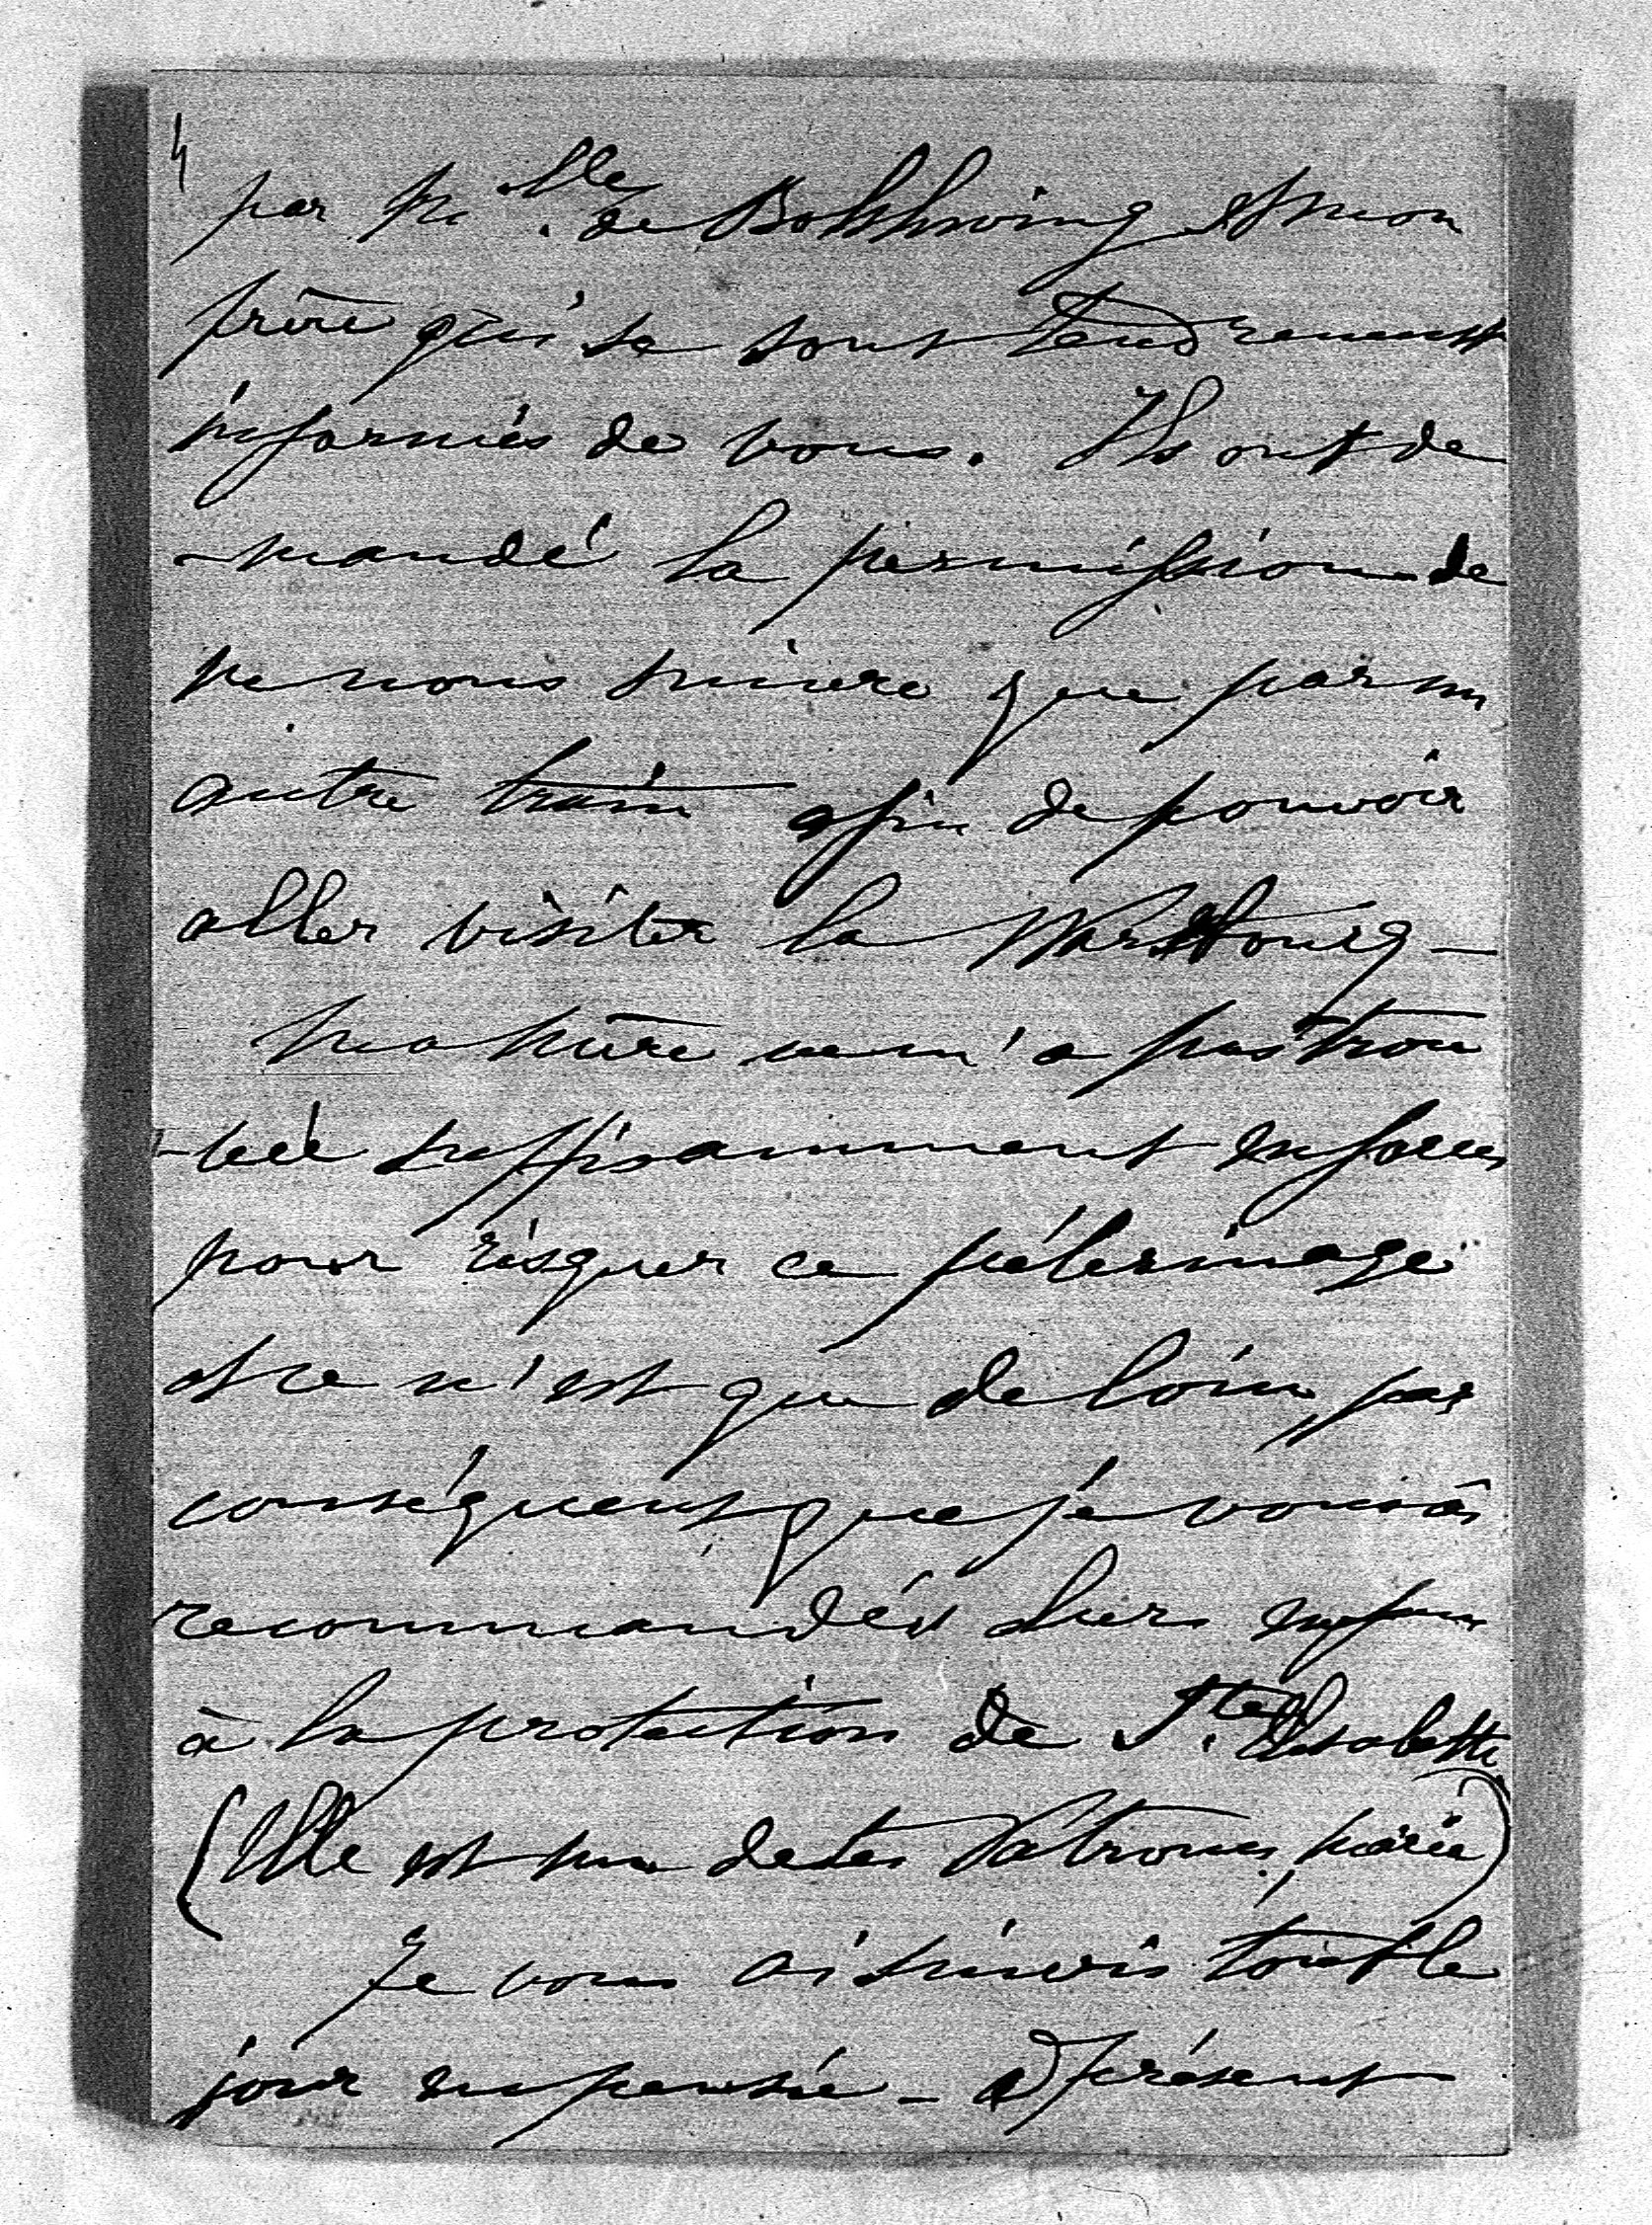 4
par Mlles de Bohlswing et mon
frère qui se sont tendrement
informés de vous. Ils ont de
-mandé la permission de
ne nous suivre que par un
autre train afin de pouvoir
aller visiter la Wartbourg -
Ma mère ne m'a pas trou
-vée suffisamment en forces
pour risquer ce pélerinage
et ce n'est que de loin, par
conséquent que je vous ai
recommandés chers enfans
à la protection de Ste Elisabeth
(Elle est une de tes Patrones, Marie)
Je vous ai suivis tout le
jour en pensée - A présent